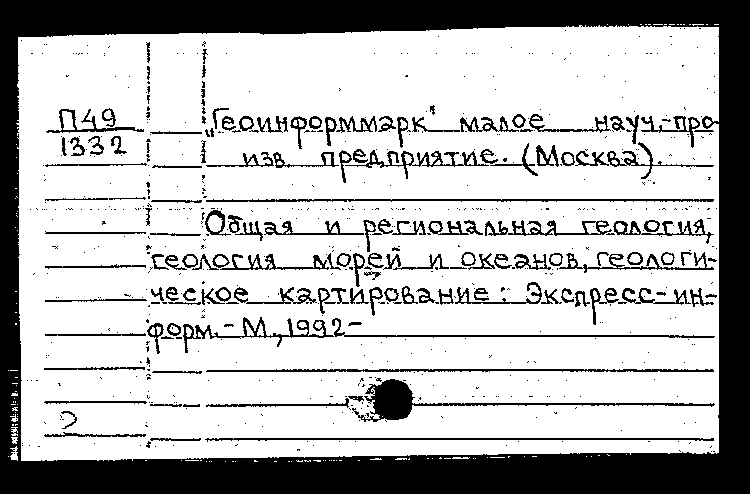 П49
1332
„Геоинформмарк" малое науч.-про-
изв. предприятие. (Москва).
Общая и региональная геология,
геология морей и океанов, геологи-
ческое картирование: Экспресс-ин-
форм. - М., 1992 -